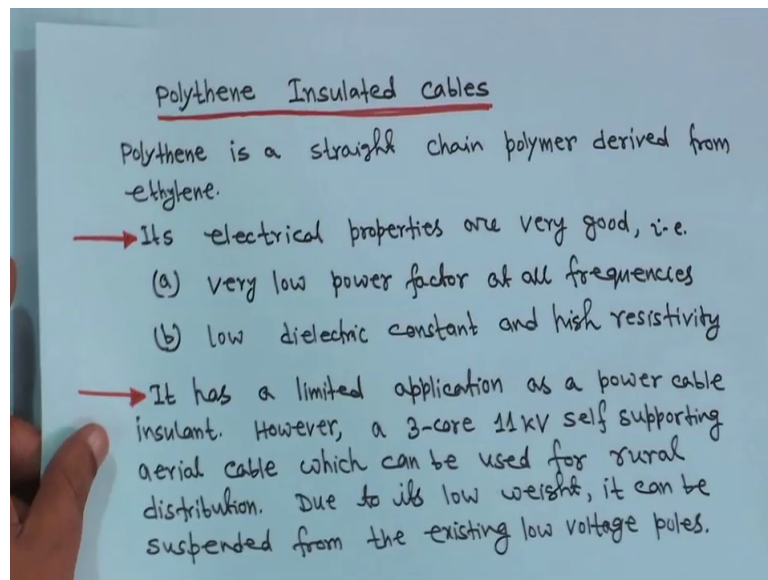 Polythene Insulated Cables
Polythene is a straight chain polymer derived from
ethylene.
→ Its electrical properties are very good, i.e.
(a) very low power factor at all frequencies
(b) low dielectric constant and high resistivity
→ It has a limited application as a power cable
insulant. However, a 3-core 11 kV self supporting
aerial cable which can be used for rural
distribution. Due to its low weight, it can be
suspended from the existing low voltage poles.